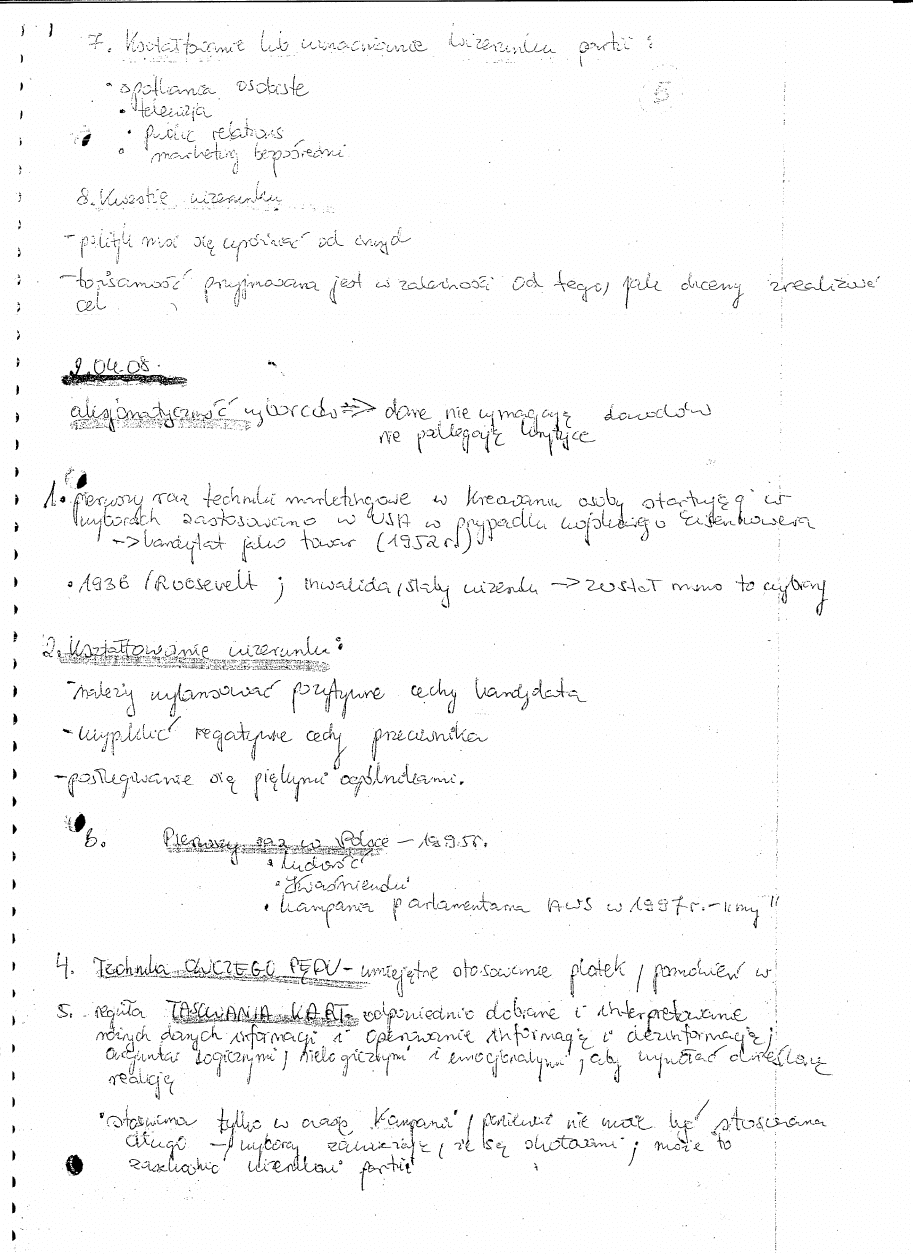 7. Kształtowanie lub wzmacnianie wizerunku partii :
5
• spotkania osobiste
• telewizja
• public relations
• marketing bezpośredni
8. Kwestie wizerunku
- polityk musi się
- tożsamość przyjmowana jest w zależności od tego, jak chcemy zrealizować
cel
2.04.08.
aksjomatyczność wyborców => dane nie wymagają dowodów
nie podlegają krytyce
1. pierwszy raz techniki marketingowe w kreowaniu osoby startującej w
wyborach zastosowano w USA w przypadku Eisenhowera
-> kandydat jako towar (1952 r.)
• 1936 / Roosevelt ; inwalida, słaby wizerunek -> został mimo to wybrany
2. Kształtowanie wizerunku:
- należy wylansować pozytywne cechy kandydata
- wypuklić negatywne cechy przeciwnika
- posługiwanie się pięknymi ogólnikami.
b. Pierwszy raz w Polsce - 1995r.
• ludość
• Kwaśniewski
• kampania parlamentarna AWS w 1997r.
4. Technika OWCZEGO PĘDU - umiejętne stosowanie plotek / pomówień w
5. reguła TASOWANIA KART - odpowiednio dobrane i interpretowanie
różnych danych informacji i operowanie informacją i dezinformacją;
logicznymi, nielogicznymi i emocjonalnymi, aby wywołać określoną
reakcję
• stosowana tylko w czasie kampanii, ponieważ nie może być stosowana
długo -> wyborcy zauważają, że są ; może to
zaszkodzić wizerunkowi partii